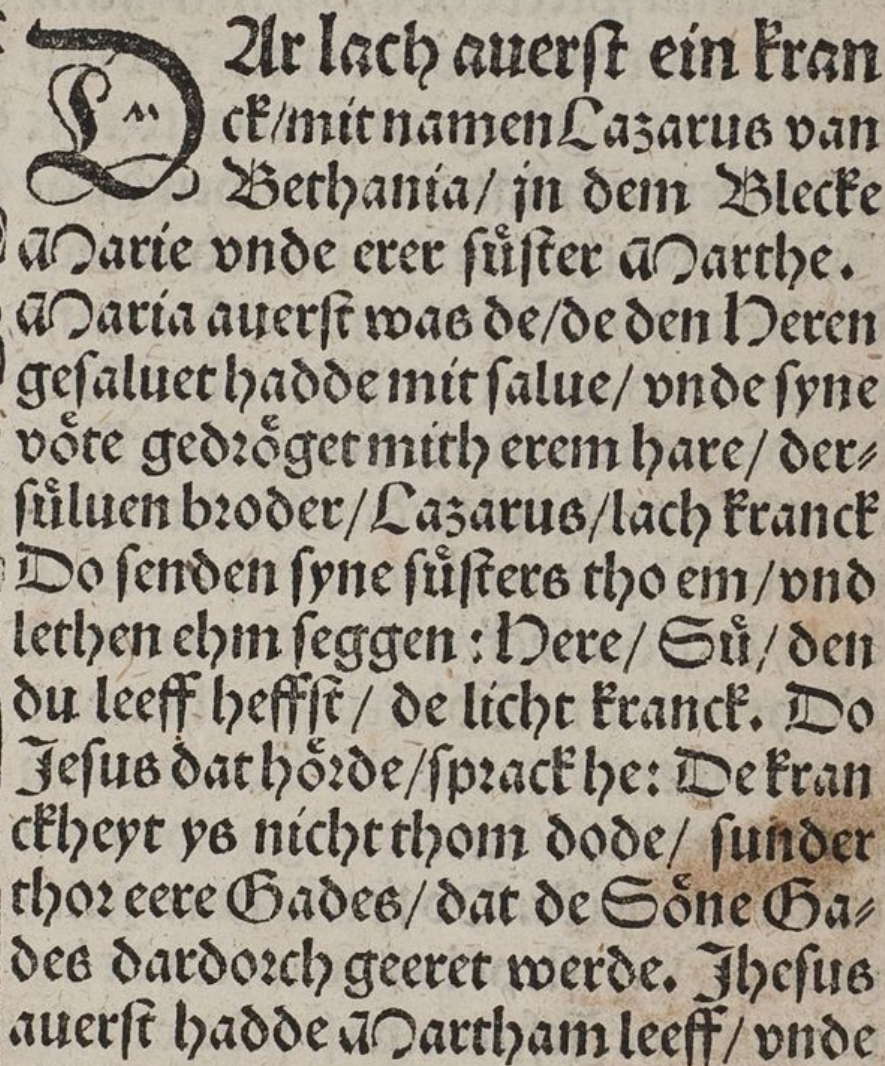 DAr lach auerſt ein kran
ck/mit namen Lazarus van
Bethania/ jn dem Blecke
Marie vnde erer ſuͤſter Marthe.
Maria auerſt was de/de den Heren
geſaluet hadde mit ſalue/ vnde ſyne
voͤte gedroͤget mith erem hare/ der⸗
ſuͤluen broder/Lazarus/lach kranck
Do ſenden ſyne ſuͤſters tho em/vnd
lethen ehm ſeggen : Here/ Suͤ/ den
du leeff heffſt/ de licht kranck. Do
Jeſus dat hoͤrde/ſprack he: De kran
ckheyt ys nicht thom dode/ ſunder
thor eere Gades/ dat de Soͤne Ga⸗
des dardorch geeret werde. Jheſus
auerſt hadde Martham leeff/ vnde